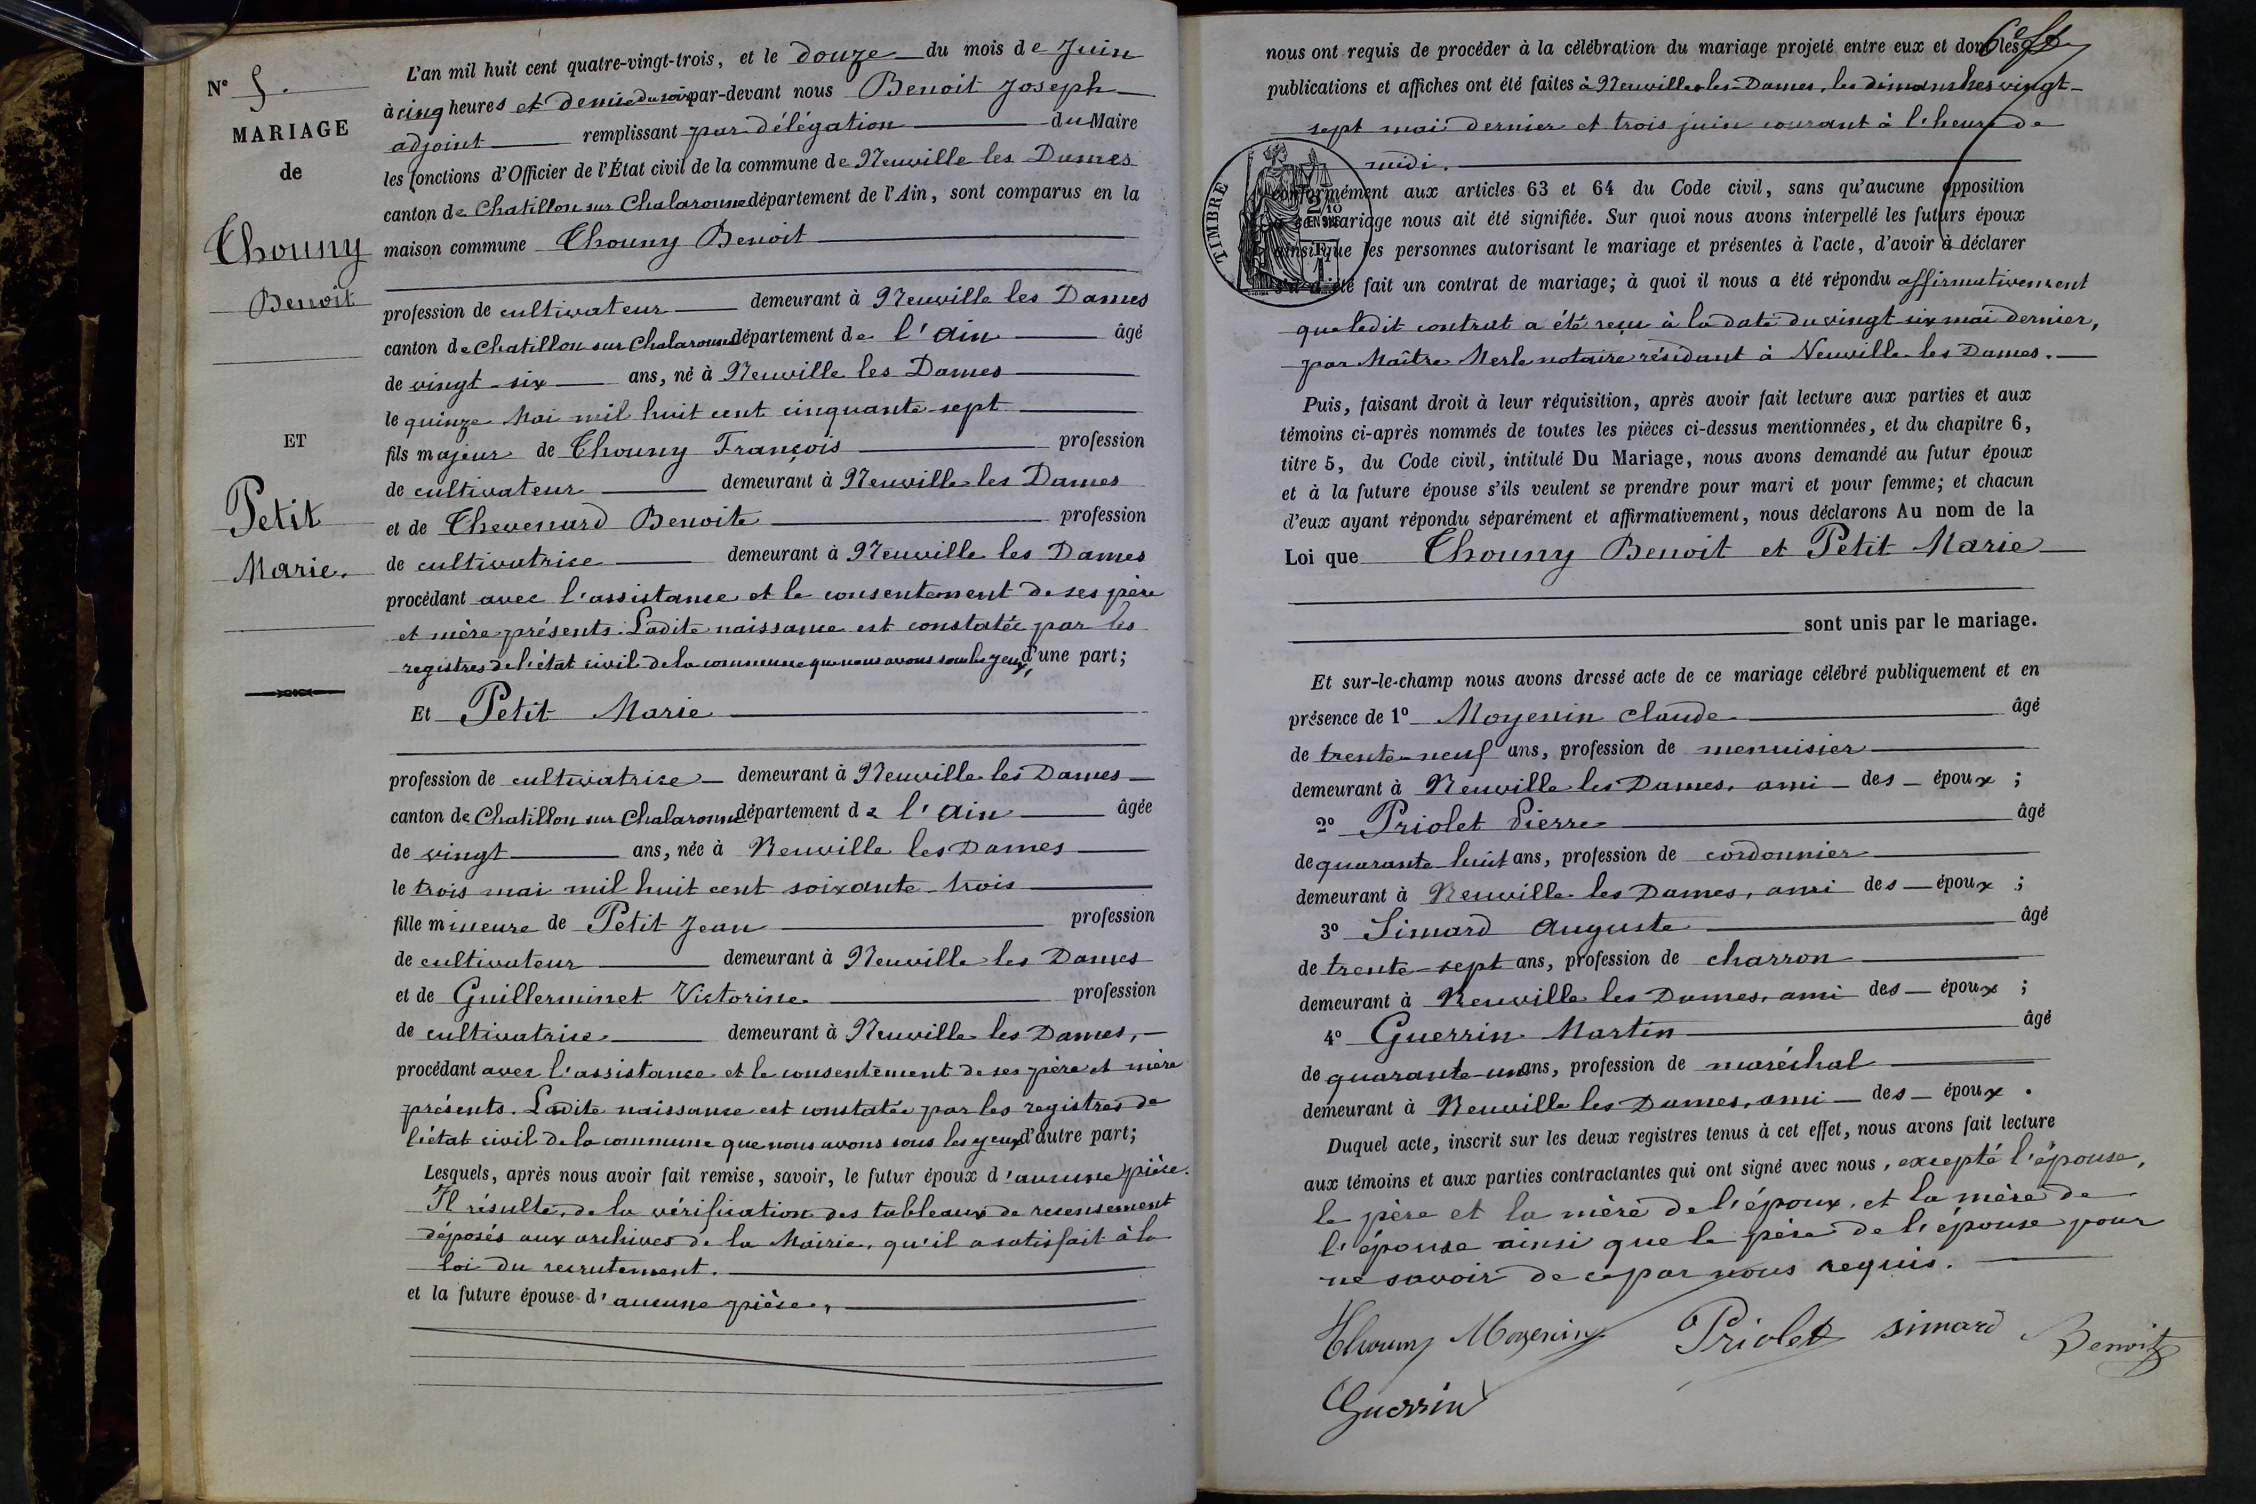 N° 5.
MARIAGE
de
Thouny
Benoit
ET
Petit
Marie.
L'an mil huit cent quatre-vingt-trois, et le douze du mois de Juin
à cinq heures et demie du soir par-devant nous Benoit Joseph
adjoint remplissant par délégation du Maire
les fonctions d'Officier de l'État civil de la commune de Neuville les Dames
canton de Chatillon sur Chalaronne département de l'Ain, sont comparus en la
maison commune Thouny Benoit
profession de cultivateur demeurant à Neuville les Dames
canton de Chatillon sur Chalaronne département de l'Ain âgé
de vingt-six ans, né à Neuville les Dames
le quinze Mai mil huit cent cinquante-sept
fils majeur de Thouny François profession
de cultivateur demeurant à Neuville les Dames
et de Thevenard Benoite profession
de cultivatrice demeurant à Neuville les Dames
procédant avec l'assistance et le consentement de ses père
et mère présents. Ladite naissance est constatée par les
registres de l'état civil de la commune que nous avons sous les yeux, d'une part;
Et Petit Marie
profession de cultivatrice demeurant à Neuville les Dames
canton de Chatillon sur Chalaronne département de l'Ain âgée
de vingt ans, née à Neuville les Dames
le trois mai mil huit cent soixante-trois
fille mineure de Petit Jean profession
de cultivateur demeurant à Neuville les Dames
et de Guillerminet Victorine profession
de cultivatrice demeurant à Neuville les Dames,
procédant avec l'assistance et le consentement de ses père et mère
présents. Ladite naissance est constatée par les registres de
l'état civil de la commune que nous avons sous les yeux d'autre part;
Lesquels, après nous avoir fait remise, savoir, le futur époux d'aucune pièce.
Il résulte, de la vérification des tableaux de recensement
déposés aux archives de la Mairie, qu'il a satisfait à la
loi du recrutement.
et la future épouse d'aucune pièce,
6e
nous ont requis de procéder à la célébration du mariage projeté entre eux et dont les
publications et affiches ont été faites à Neuville les Dames, les dimanches vingt-
sept mai dernier et trois juin courant à l'heure de
midi.
TIMBRE
2/10
EN SUS
conformément aux articles 63 et 64 du Code civil, sans qu'aucune opposition
à ce mariage nous ait été signifiée. Sur quoi nous avons interpellé les futurs époux
ainsi que les personnes autorisant le mariage et présentes à l'acte, d'avoir à déclarer
s'il a été fait un contrat de mariage; à quoi il nous a été répondu affirmativement
que ledit contrat a été reçu à la date du vingt six mai dernier,
par Maître Merle notaire résidant à Neuville les Dames.
Puis, faisant droit à leur réquisition, après avoir fait lecture aux parties et aux
témoins ci-après nommés de toutes les pièces ci-dessus mentionnées, et du chapitre 6,
titre 5, du Code civil, intitulé Du Mariage, nous avons demandé au futur époux
et à la future épouse s'ils veulent se prendre pour mari et pour femme; et chacun
d'eux ayant répondu séparément et affirmativement, nous déclarons Au nom de la
Loi que Thouny Benoit et Petit Marie
sont unis par le mariage.
Et sur-le-champ nous avons dressé acte de ce mariage célébré publiquement et en
présence de 1° Moyenin Claude âgé
de trente-neuf ans, profession de menuisier
demeurant à Neuville les Dames, ami des époux ;
2° Priolet Pierre âgé
de quarante huit ans, profession de cordonnier
demeurant à Neuville les Dames, ami des époux ;
3° Simard Auguste âgé
de trente-sept ans, profession de charron
demeurant à Neuville les Dames, ami des époux ;
4° Guerrin Martin âgé
de quarante-un ans, profession de maréchal
demeurant à Neuville les Dames, ami des époux.
Duquel acte, inscrit sur les deux registres tenus à cet effet, nous avons fait lecture
aux témoins et aux parties contractantes qui ont signé avec nous, excepté l'épouse,
le père et la mère de l'époux, et la mère de
l'épouse ainsi que le père de l'épouse pour
ne savoir de ce par nous requis.
Thouny Moyenin Priolet Simard Benoit
Guerrin